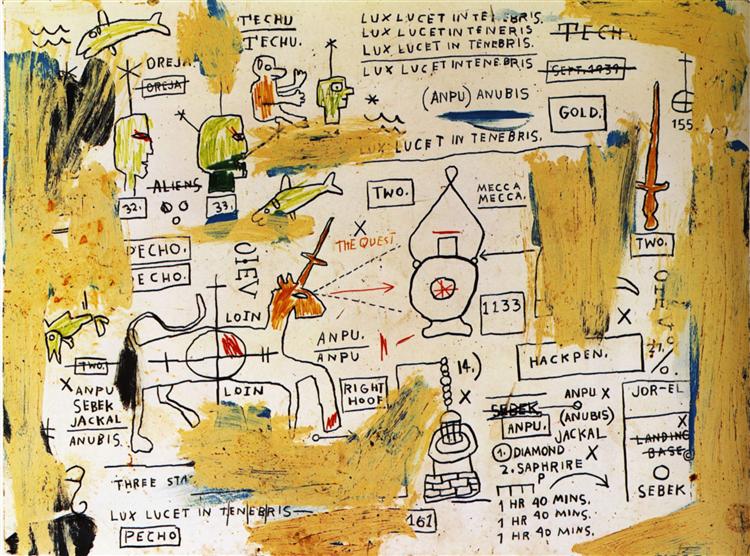 TECHU
TECHU.
LUX LUCET IN TENEBRIS.
LUX LUCET IN TENERIS
LUX LUCET IN TENEBRIS.
LUX LUCET IN TENEBRIS
TECHU
OREJA
OREJA
SEPT. 1939
(ANPU) ANUBIS
GOLD.
155
LUX LUCET IN TENEBRIS.
ALIENS
32.
33.
TWO.
MECCA
MECCA.
TWO.
PECHO.
PECHO.
OIEV
X
THE QUEST
LOIN
1133
X
ANPU.
ANPU
HACKPEN.
%
TWO.
14.)
X
LOIN
RIGHT
HOOF
X ANPU
SEBEK
JACKAL
ANUBIS.
SEBEK.
ANPU.
ANPU X
(ANUBIS)
JACKAL
JOR-EL
X
LANDING
BASE
SEBEK
1. DIAMOND X
2. SAPHRIRE
P
THREE STA
1 HR 40 MINS.
1 HR 40 MINS.
1 HR 40 MINS.
LUX LUCET IN TENEBRIS
PECHO
161